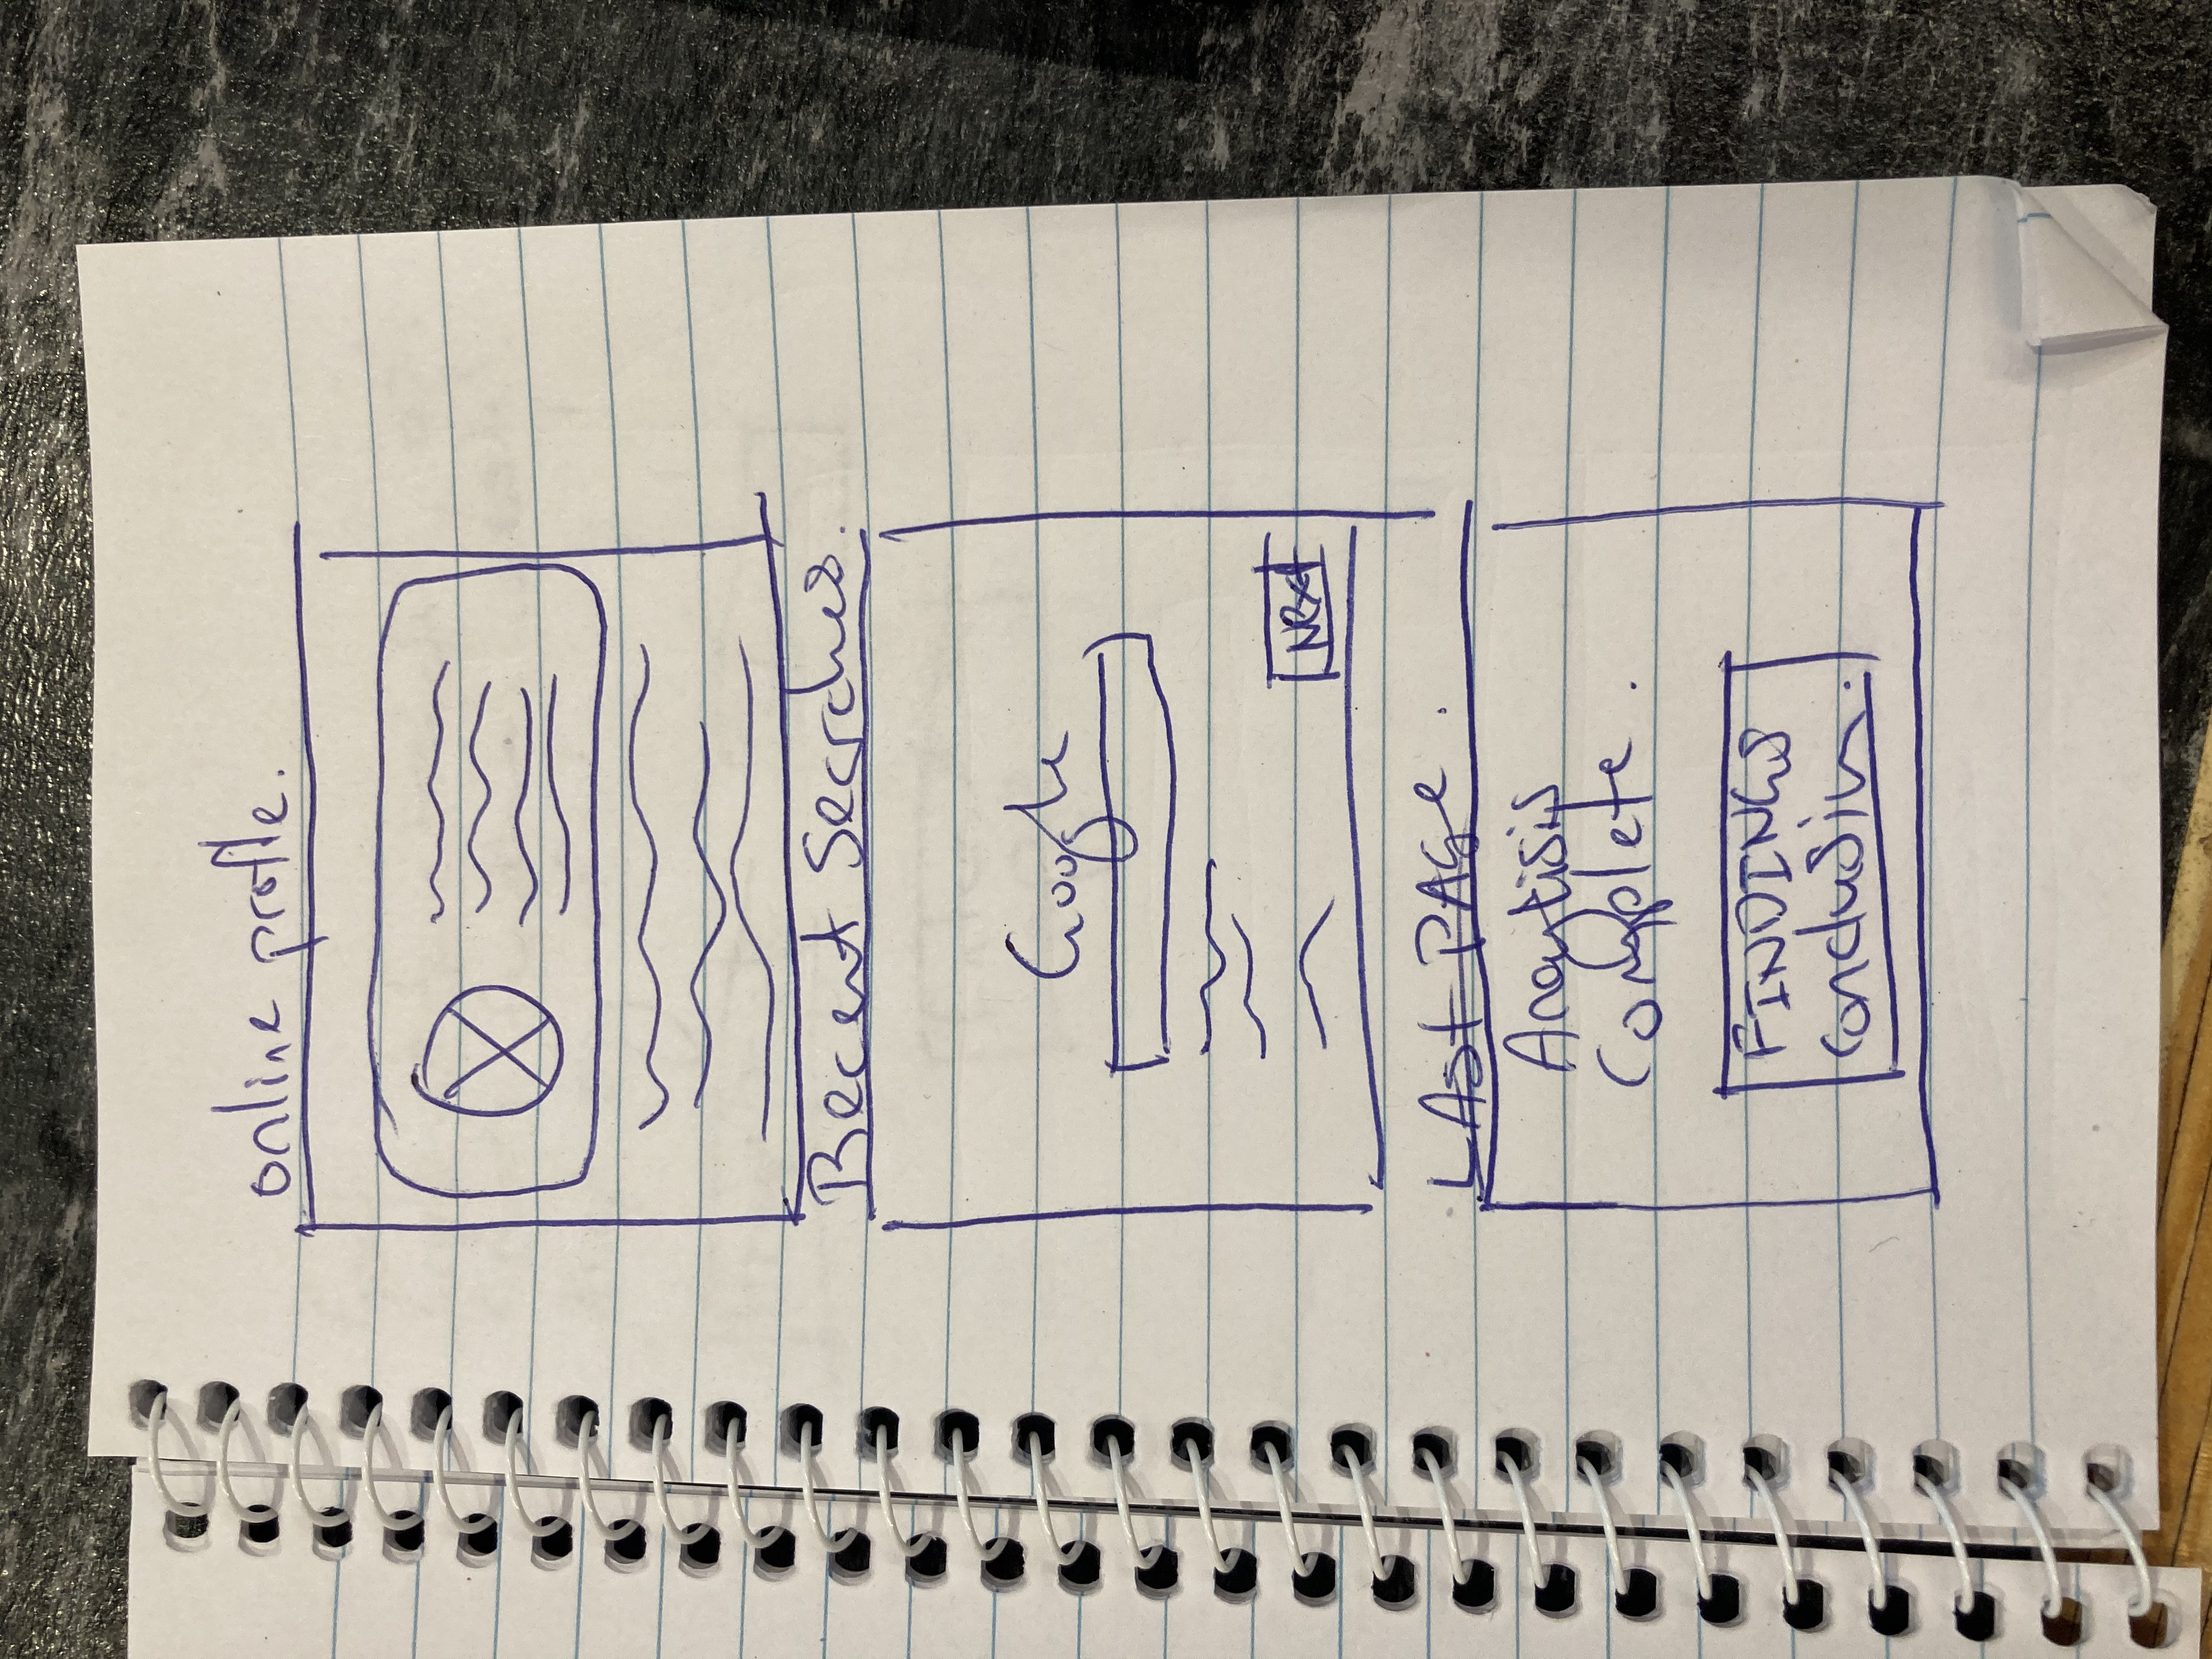 online profile.
Recent Searches.
Google
Next
LAst PAGe.
Anaytisis
Complete.
FINDINGS
Conclusion.